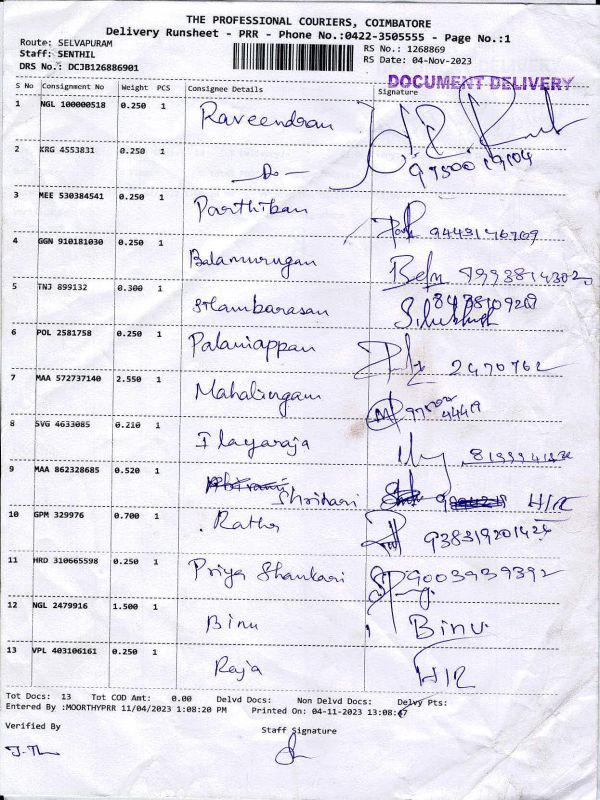 THE PROFESSIONAL COURIERS, COIMBATORE
Delivery Runsheet - PRR - Phone No.:0422-3505555 - Page No.:1
Route: SELVAPURAM
Staff: SENTHIL
DRS No.: DCJB126886901
RS No.: 1268869
RS Date: 04-Nov-2023
DOCUMENT DELIVERY
S No Consignment No Weight PCS Consignee Details Signature
1 NGL 100000518 0.250 1 Raveendran
2 KRG 4553831 0.250 1 Do
3 MEE 530384541 0.250 1 Parthiban
4 GGN 910181030 0.250 1 Balamurugan
5 TNJ 899132 0.300 1 Silambarasan
6 POL 2581758 0.250 1 Palaniappan 2470762
7 MAA 572737140 2.550 1 Mahalingam
8 SVG 4633085 0.210 1 Ilayaraja
9 MAA 862328685 0.520 1 Shrihari H/R
10 GPM 329976 0.700 1
11 HRD 310665598 0.250 1 Priya Shankari 9003939392
12 NGL 2479916 1.500 1 Binu Binu
13 VPL 403106161 0.250 1 Raja H/R
Tot Docs: 13 Tot COD Amt: 0.00 Delvd Docs: Non Delvd Docs: Delvy Pts:
Entered By :MOORTHYPRR 11/04/2023 1:08:20 PM Printed On: 04-11-2023 13:08:47
Verified By Staff Signature